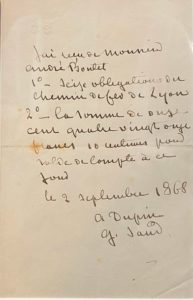 J'ai reçu de monsieur
André Boutet
1º - Seize obligations du
chemin de fer de Lyon
2º - la somme de onze
cent quatre vingt onze
francs 10 centimes pour
solde de compte à ce
jour
le 2 septembre 1868
A Dupin
G. Sand